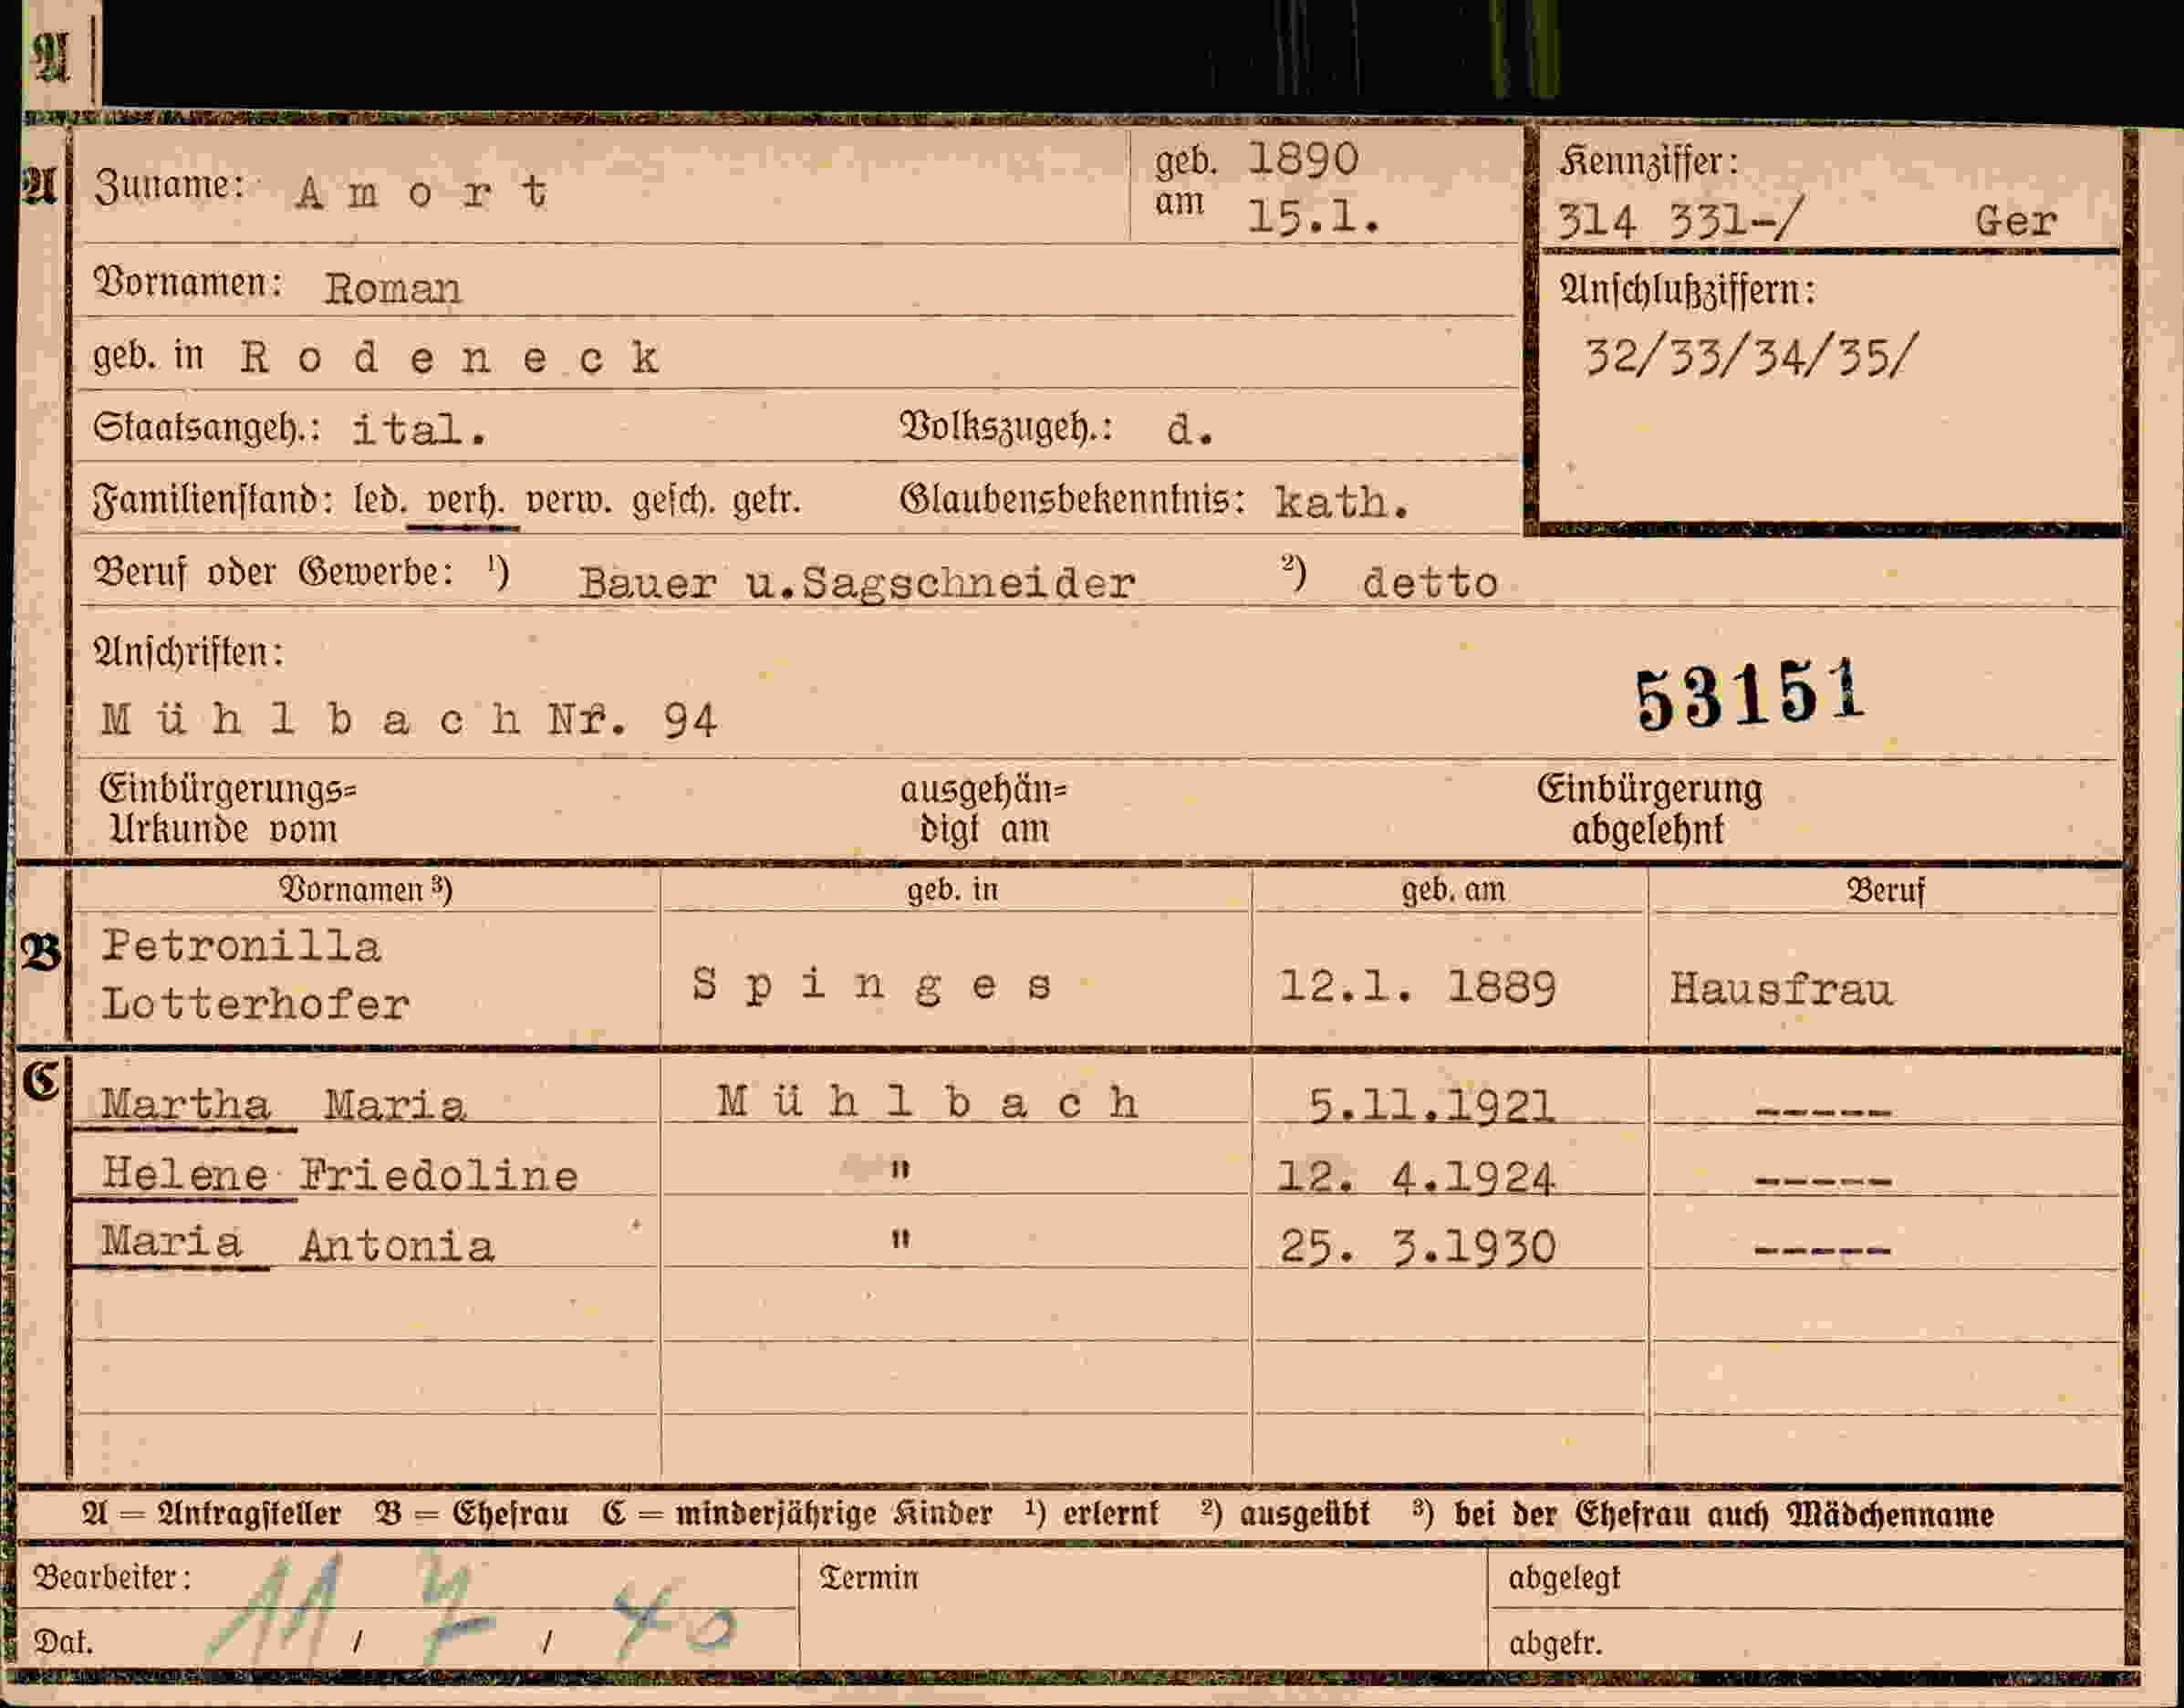 A
A Zuname: A m o r t geb. 1890 Kennziffer:
am 15.1. 314 331-/ Ger
Vornamen: Roman Anschlußziffern:
geb. in R o d e n e c k 32/33/34/35/
Staatsangeh.: ital. Volkszugeh.: d.
Familienstand: led. verh. verw. gesch. getr. Glaubensbekenntnis: kath.
Beruf oder Gewerbe: ¹) Bauer u.Sagschneider ²) detto
Anschriften:
M ü h l b a c h Nr. 94 53151
Einbürgerungs= ausgehän= Einbürgerung
Urkunde vom digt am abgelehnt
Vornamen ³) geb. in geb. am Beruf
B Petronilla
Lotterhofer S p i n g e s 12.1. 1889 Hausfrau
C Martha Maria M ü h l b a c h 5.11.1921 -----
Helene Friedoline " 12. 4.1924 -----
Maria Antonia " 25. 3.1930 -----
A = Antragsteller B = Ehefrau C = minderjährige Kinder ¹) erlernt ²) ausgeübt ³) bei der Ehefrau auch Mädchenname
Bearbeiter: Termin abgelegt
Dat. 11 / 7 / 40 abgetr.